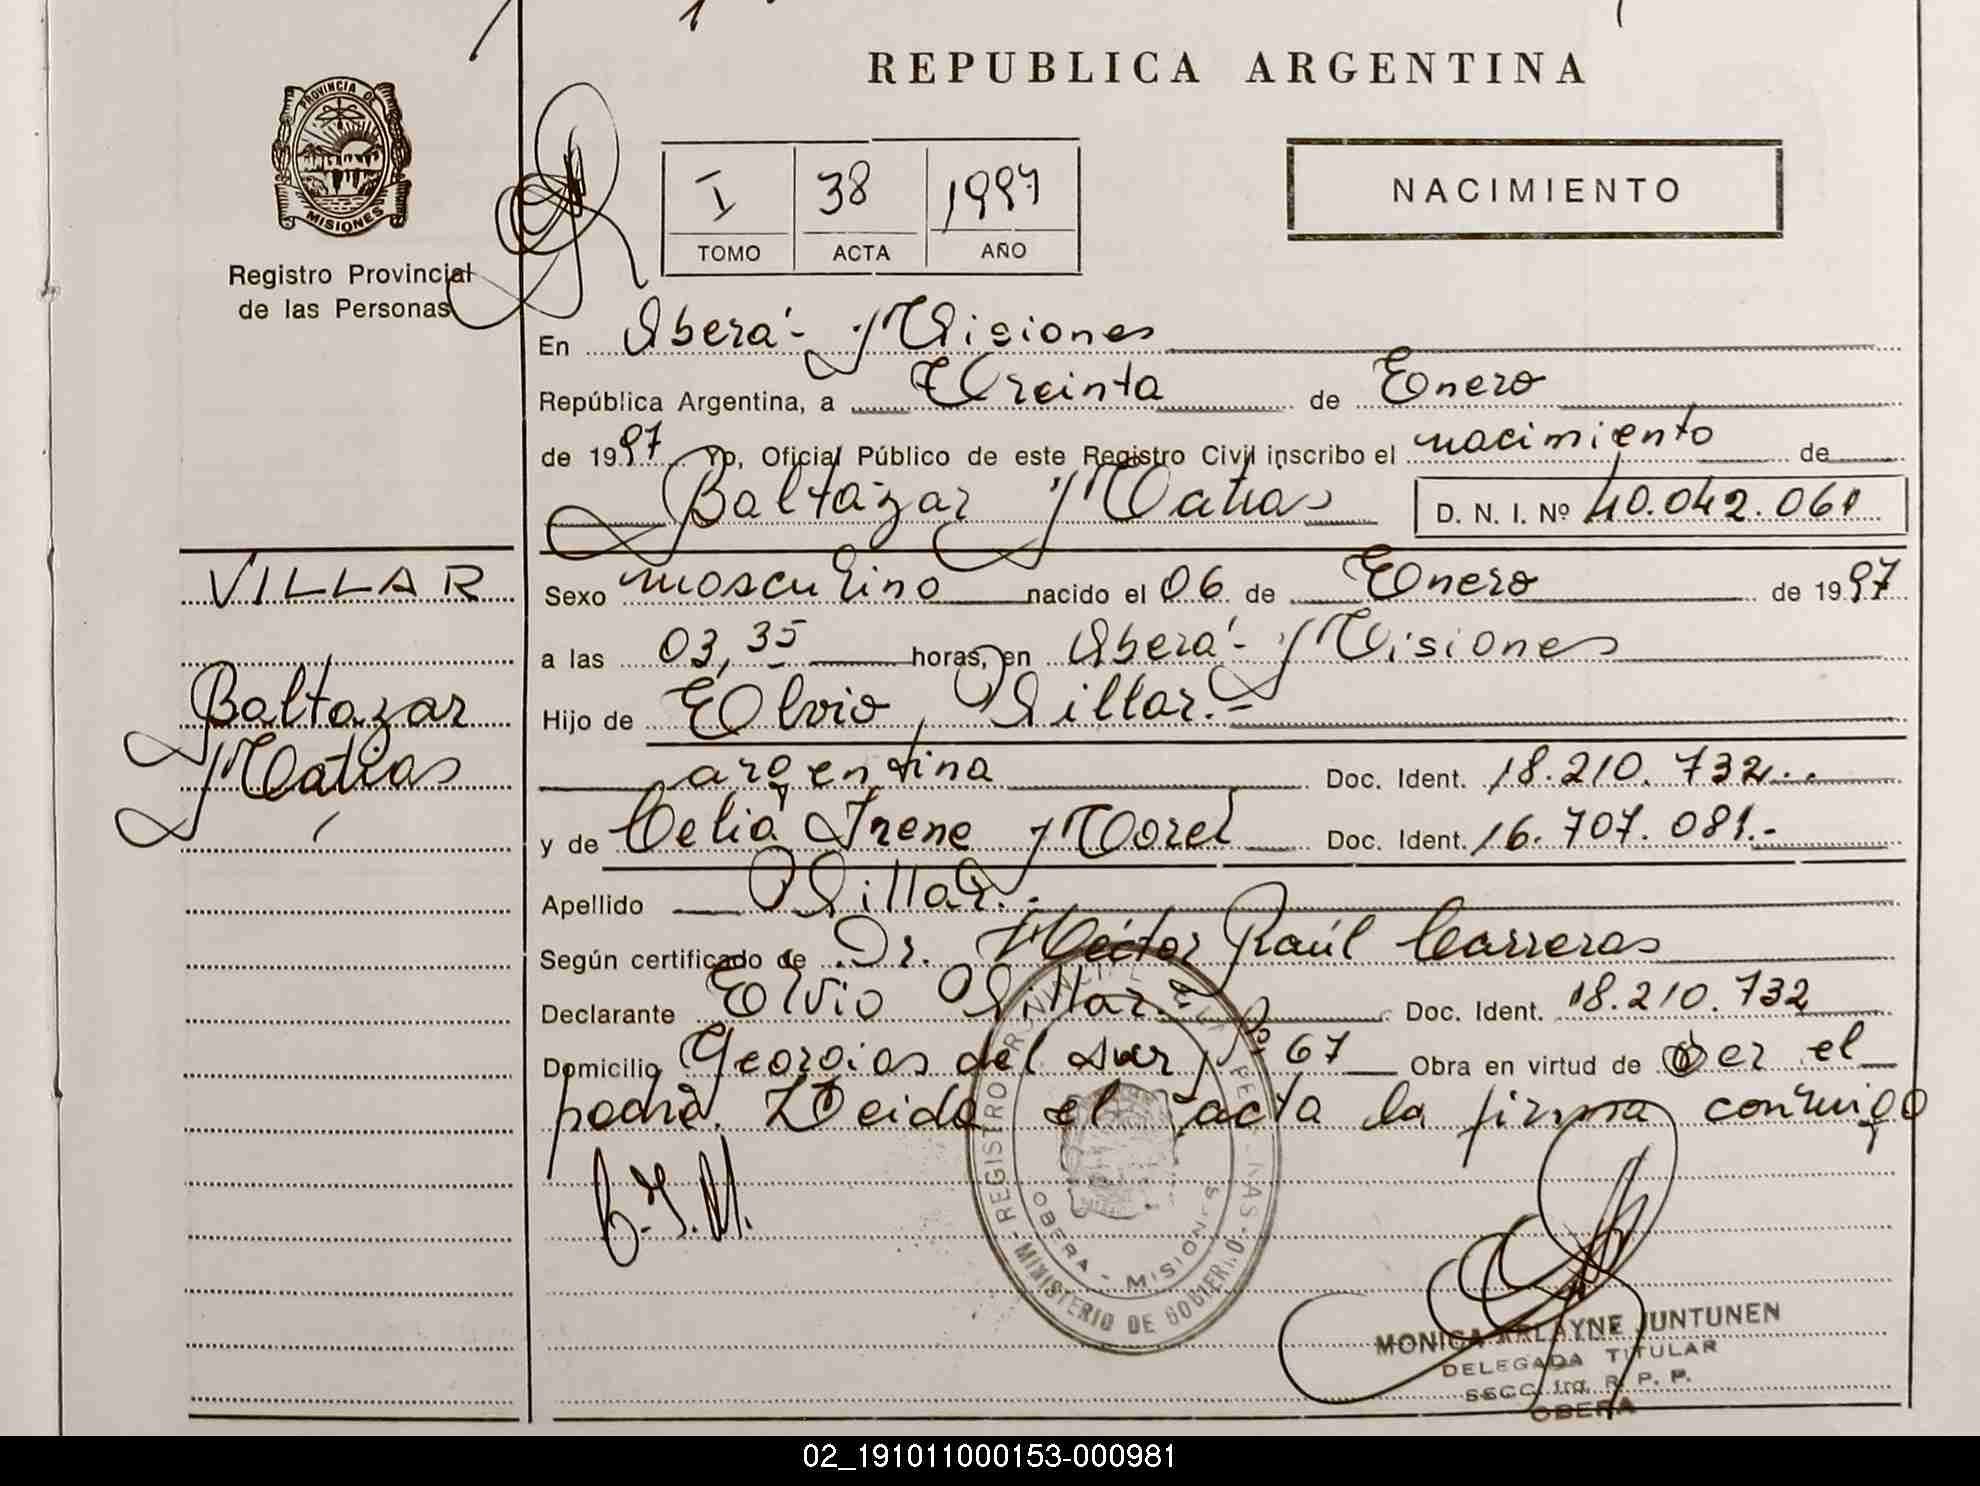 REPUBLICA ARGENTINA
PROVINCIA DE
MISIONES
Registro Provincial
de las Personas
I 38 1997
TOMO ACTA AÑO
NACIMIENTO
En Oberá - Misiones
República Argentina, a Treinta de Enero
de 1997 Yo, Oficial Público de este Registro Civil inscribo el nacimiento de
Baltazar Matias D. N. I. Nº 40.042.061
VILLAR
Baltazar
Matias
Sexo masculino nacido el 06 de Enero de 1997
a las 03,35 horas, en Oberá - Misiones
Hijo de Elvio Villar.-
argentina Doc. Ident. 18.210.732..
y de Celia Irene Morel Doc. Ident. 16.707.081.-
Apellido Villar.-
Según certificado de Dr. Héctor Raúl Carreras
Declarante Elvio Villar.- Doc. Ident. 18.210.732
Domicilio Georgias del sur Nº 67 Obra en virtud de ser el
padre. Leida el acta la firma conmigo
C.I.M.
REGISTRO PROVINCIAL DE LAS PERSONAS - MINISTERIO DE GOBIERNO -
OBERA - MISIONES
MONICA ARLAYNE JUNTUNEN
DELEGADA TITULAR
SECC. 1ra. R. P. P.
OBERA
02_191011000153-000981